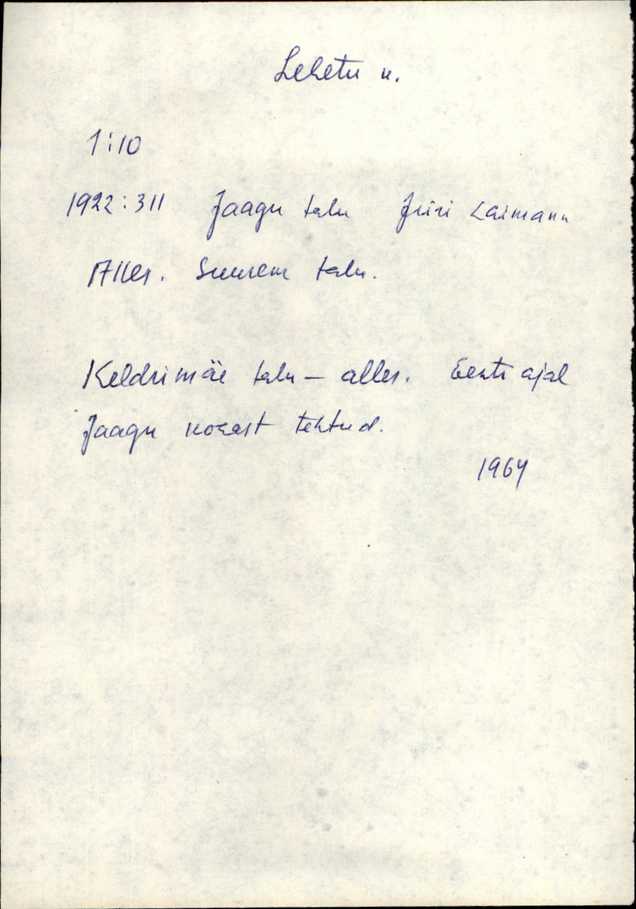 Lehetu k.
1:10
1922:311 Jaagu talu Jüri Laimann
Alles. Suurem talu.
Keldrimäe talu – alles. Eesti ajal
Jaagu kohast tehtud.
1964